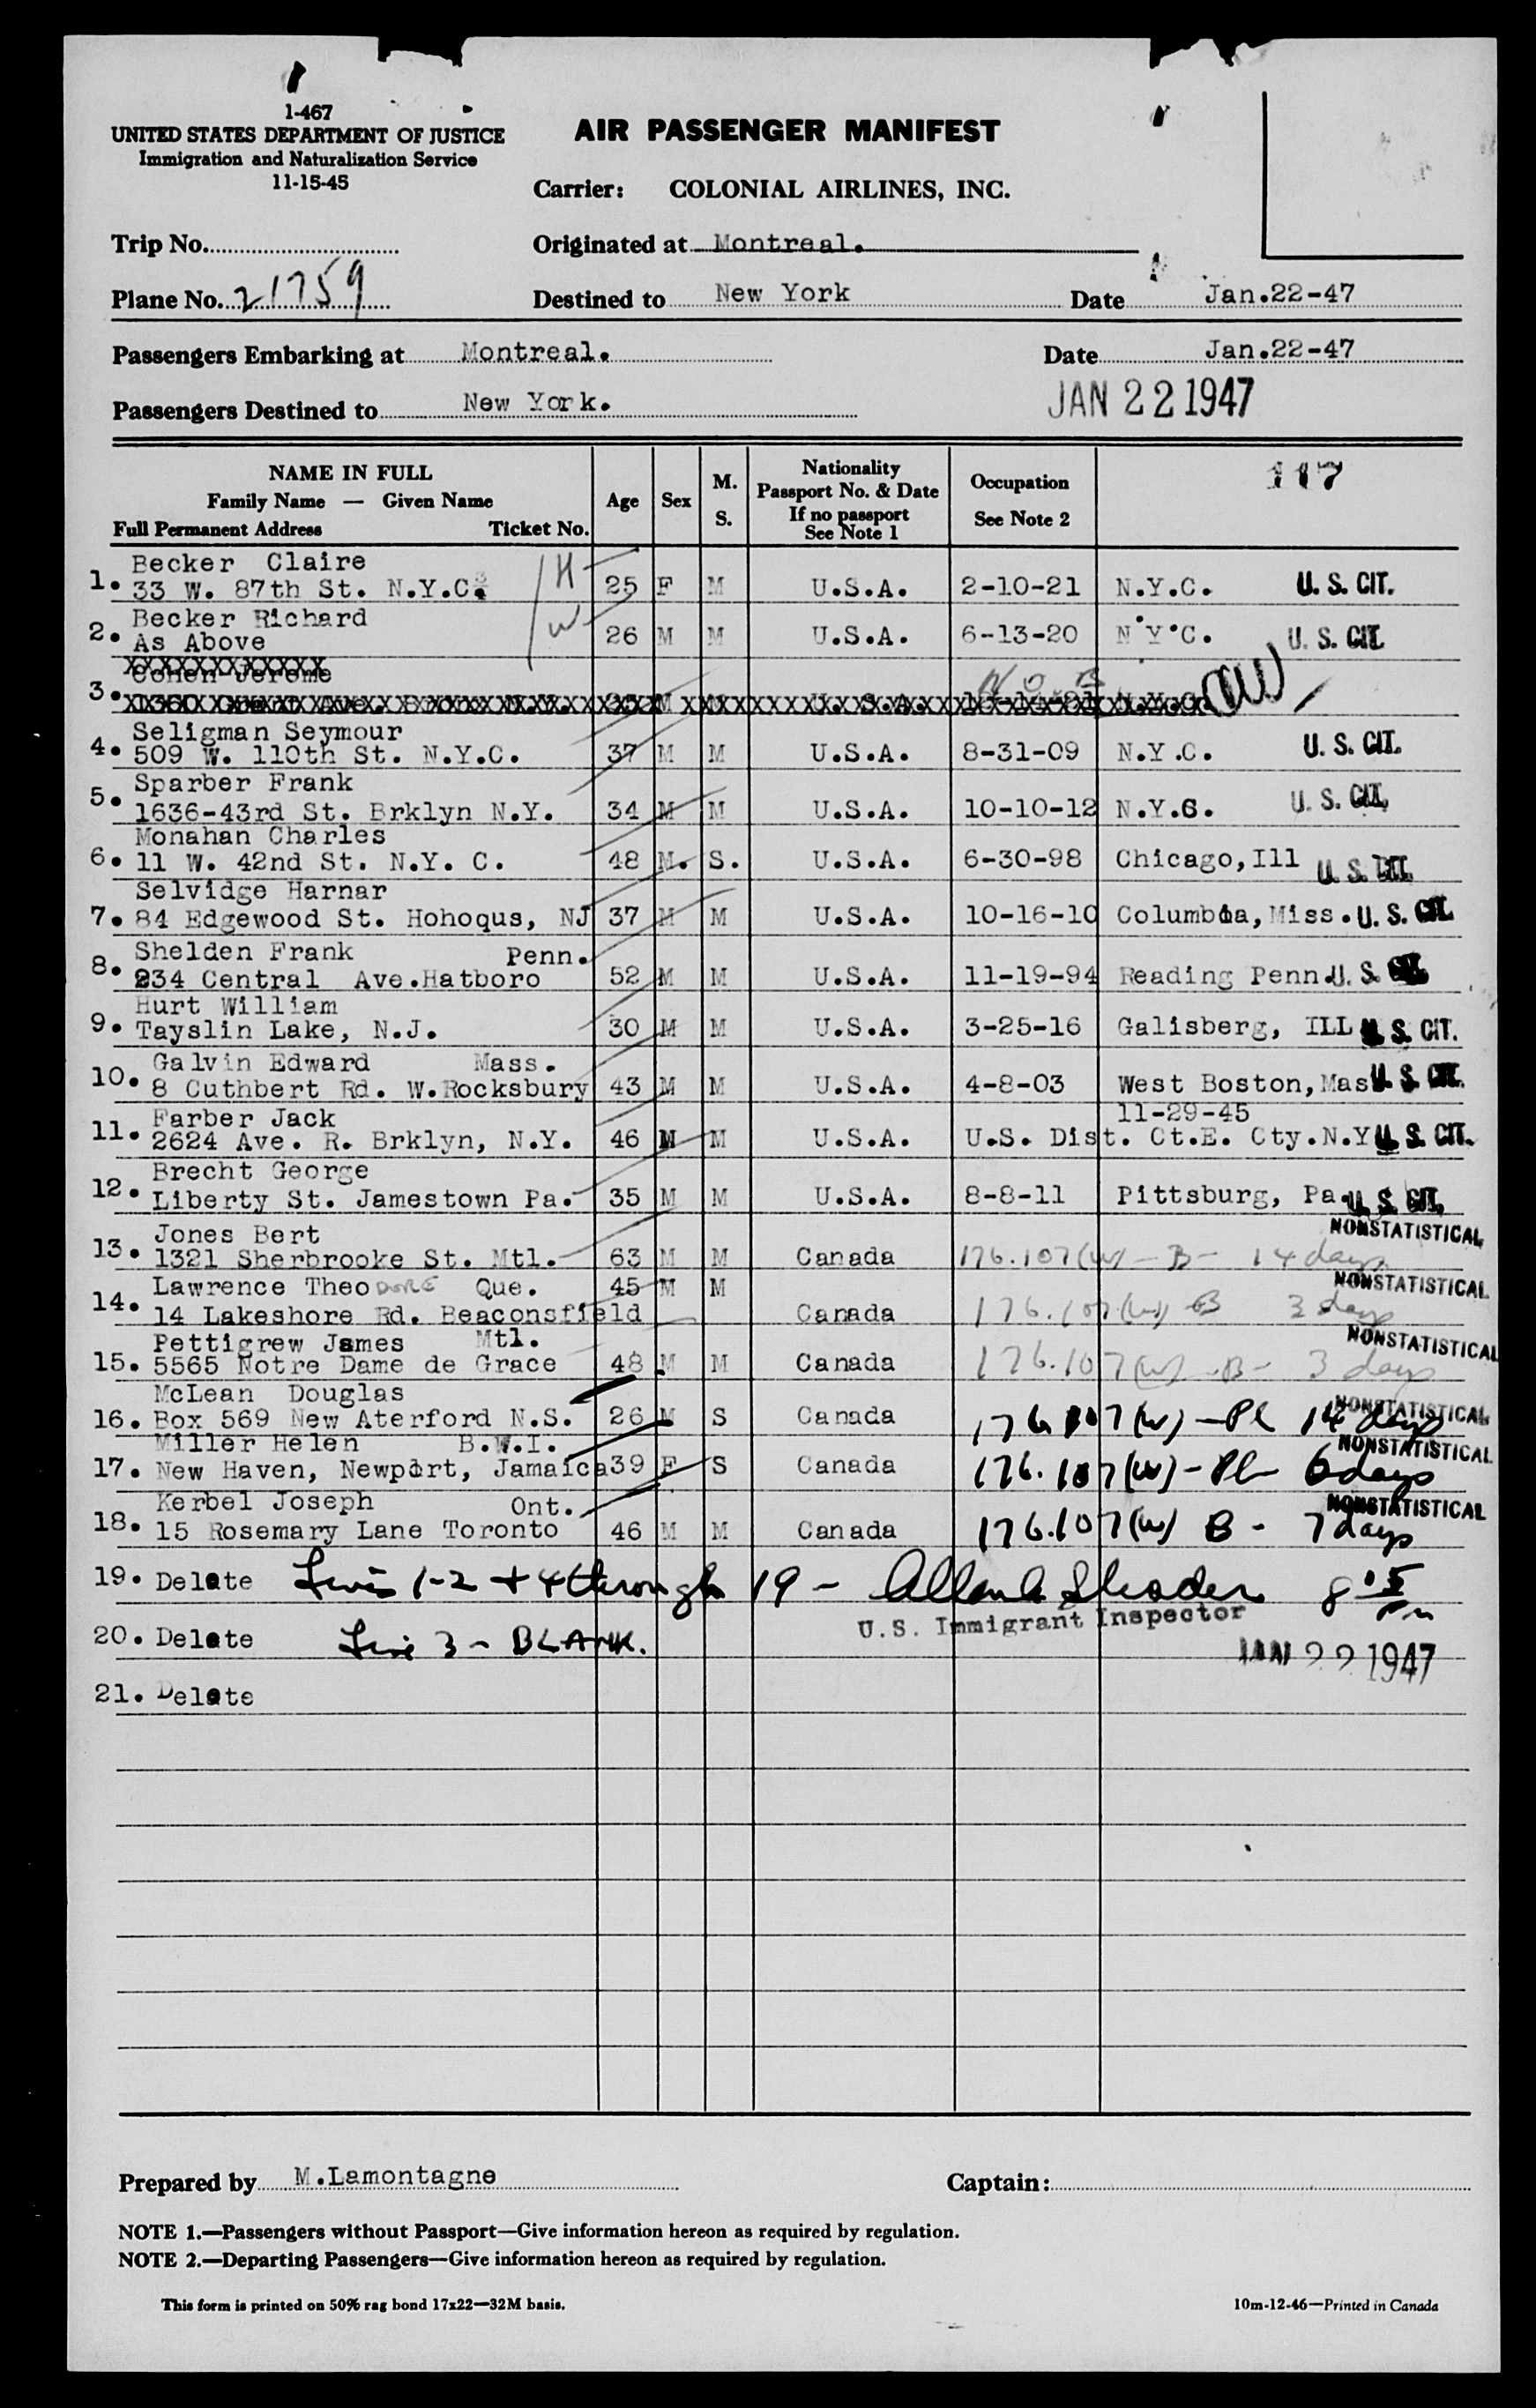 1-467
UNITED STATES DEPARTMENT OF JUSTICE
Immigration and Naturalization Service
11-15-45
AIR PASSENGER MANIFEST
Carrier: COLONIAL AIRLINES, INC.
Trip No.
Originated at Montreal.
Plane No. 21759
Destined to New York
Date Jan.22-47
Passengers Embarking at Montreal.
Date Jan.22-47
Passengers Destined to New York.
JAN 22 1947
NAME IN FULL
Family Name — Given Name
Full Permanent Address Ticket No.
Age
Sex
M.
S.
Nationality
Passport No. & Date
If no passport
See Note 1
Occupation
See Note 2
117
Becker Claire
1. 33 W. 87th St. N.Y.C. H 25 F M U.S.A. 2-10-21 N.Y.C. U. S. CIT.
Becker Richard
2. As Above W 26 M M U.S.A. 6-13-20 N.Y.C. U. S. CIT.
Cohen Jerome
3.
Seligman Seymour
4. 509 W. 110th St. N.Y.C. 37 M M U.S.A. 8-31-09 N.Y.C. U. S. CIT.
Sparber Frank
5. 1636-43rd St. Brklyn N.Y. 34 M M U.S.A. 10-10-12 N.Y.C. U. S. CIT.
Monahan Charles
6. 11 W. 42nd St. N.Y. C. 48 M. S. U.S.A. 6-30-98 Chicago,Ill U. S. CIT.
Selvidge Harnar
7. 84 Edgewood St. Hohoqus, NJ 37 M M U.S.A. 10-16-10 Columbia, Miss. U. S. CIT.
Shelden Frank Penn.
8. 234 Central Ave.Hatboro 52 M M U.S.A. 11-19-94 Reading Penn. U. S. CIT.
Hurt William
9. Tayslin Lake, N.J. 30 M M U.S.A. 3-25-16 Galisberg, ILL U. S. CIT.
Galvin Edward Mass.
10. 8 Cuthbert Rd. W.Rocksbury 43 M M U.S.A. 4-8-03 West Boston,Mas U. S. CIT.
Farber Jack 11-29-45
11. 2624 Ave. R. Brklyn, N.Y. 46 M M U.S.A. U.S. Dist. Ct.E. Cty.N.Y U. S. CIT.
Brecht George
12. Liberty St. Jamestown Pa. 35 M M U.S.A. 8-8-11 Pittsburg, Pa. U. S. CIT.
Jones Bert NONSTATISTICAL
13. 1321 Sherbrooke St. Mtl. 63 M M Canada 176.107(W) - B - 14 days
Lawrence TheoDORE Que. 45 M M NONSTATISTICAL
14. 14 Lakeshore Rd. Beaconsfield Canada 176.107(W) - B 3 days
Pettigrew James Mtl. NONSTATISTICAL
15. 5565 Notre Dame de Grace 48 M M Canada 176.107(W) - B - 3 days
McLean Douglas NONSTATISTICAL
16. Box 569 New Aterford N.S. 26 M S Canada 176.107(W) - Pl 14 days
Miller Helen B.W.I. NONSTATISTICAL
17. New Haven, Newport, Jamaica 39 F S Canada 176.107(W) - Pl - 6 days
Kerbel Joseph Ont. NONSTATISTICAL
18. 15 Rosemary Lane Toronto 46 M M Canada 176.107(W) B - 7 days
19. Delete Lines 1-2 + 4 through 19 - 8 05 PM
U.S. Immigrant Inspector
20. Delete Line 3 - BLANK.
JAN 22 1947
21. Delete
Prepared by M.Lamontagne
Captain:
NOTE 1.—Passengers without Passport—Give information hereon as required by regulation.
NOTE 2.—Departing Passengers—Give information hereon as required by regulation.
This form is printed on 50% rag bond 17x22—32M basis.
10m-12-46—Printed in Canada